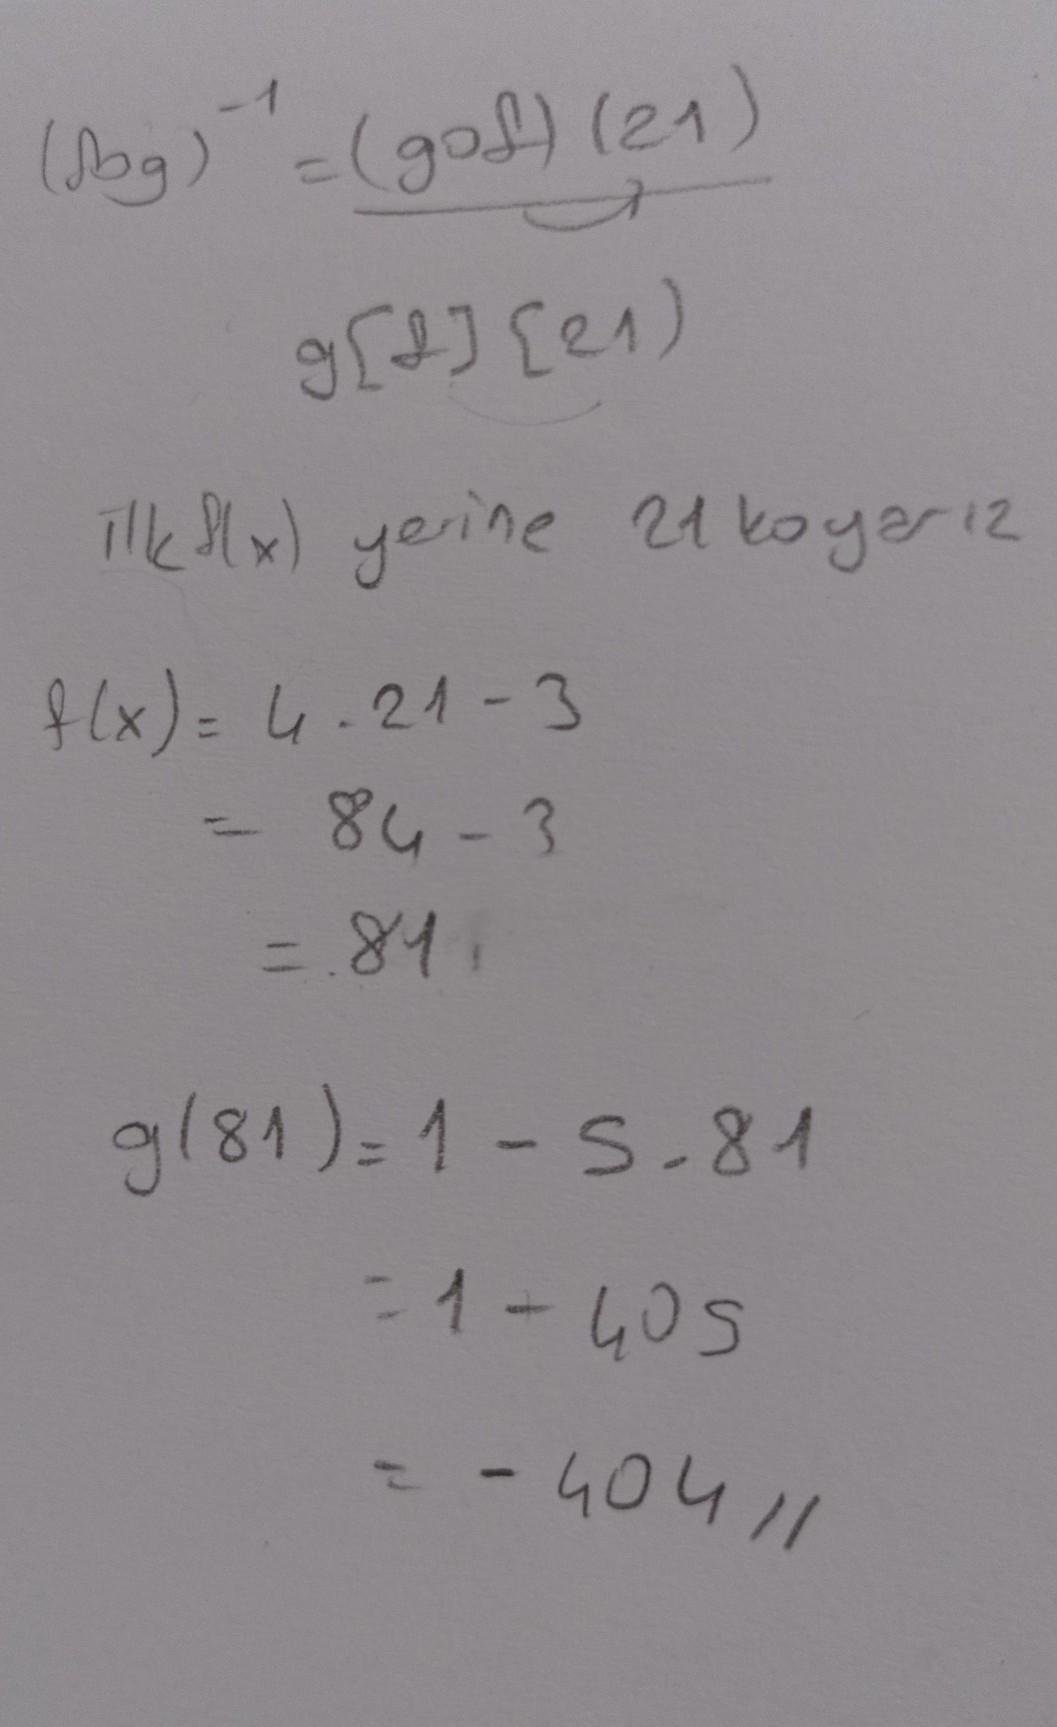 (fog)⁻¹ = (gof) (21)
g[f] [21)
İlk f(x) yerine 21 koyarız
f(x) = 4 . 21 - 3
= 84 - 3
= 81
g(81) = 1 - 5 . 81
= 1 - 405
= - 404 //